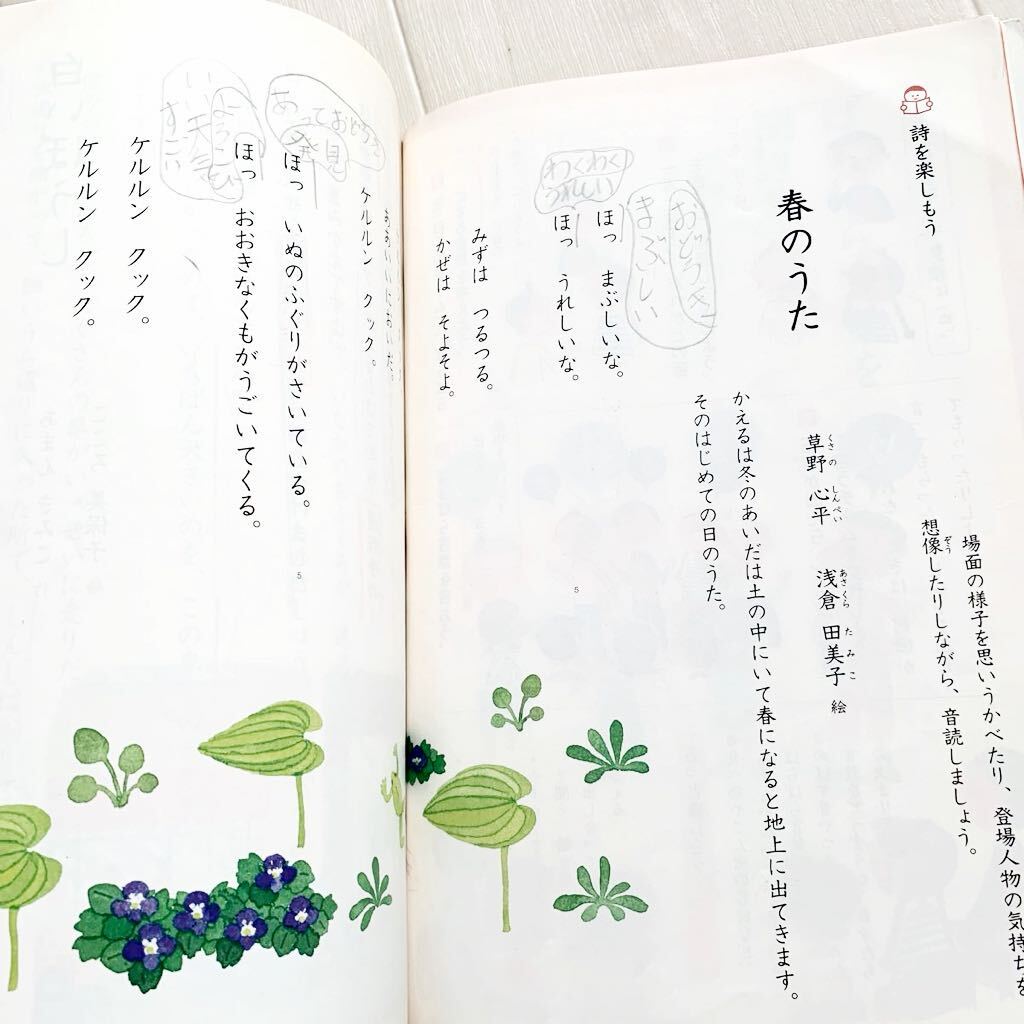 詩を楽しもう
場面の様子を思いうかべたり、登場人物の気持ちを
想像したりしながら、音読しましょう。
ぞう
春のうた
草野 心平
くさの しんぺい
浅倉 田美子 絵
あさくら たみこ
かえるは冬のあいだは土の中にいて春になると地上に出てきます。
そのはじめての日のうた。
おどろき
まぶしい
わくわく
うれしい
ほっ まぶしいな。
ほっ うれしいな。
みずは つるつる。
かぜは そよそよ。
5
ケルルン クック。
ああいいにおいだ。
ケルルン クック。
発見
ほっ いぬのふぐりがさいている。
ほっ おおきなくもがうごいてくる。
いい
天気
すごい
ケルルン クック。
ケルルン クック。
5